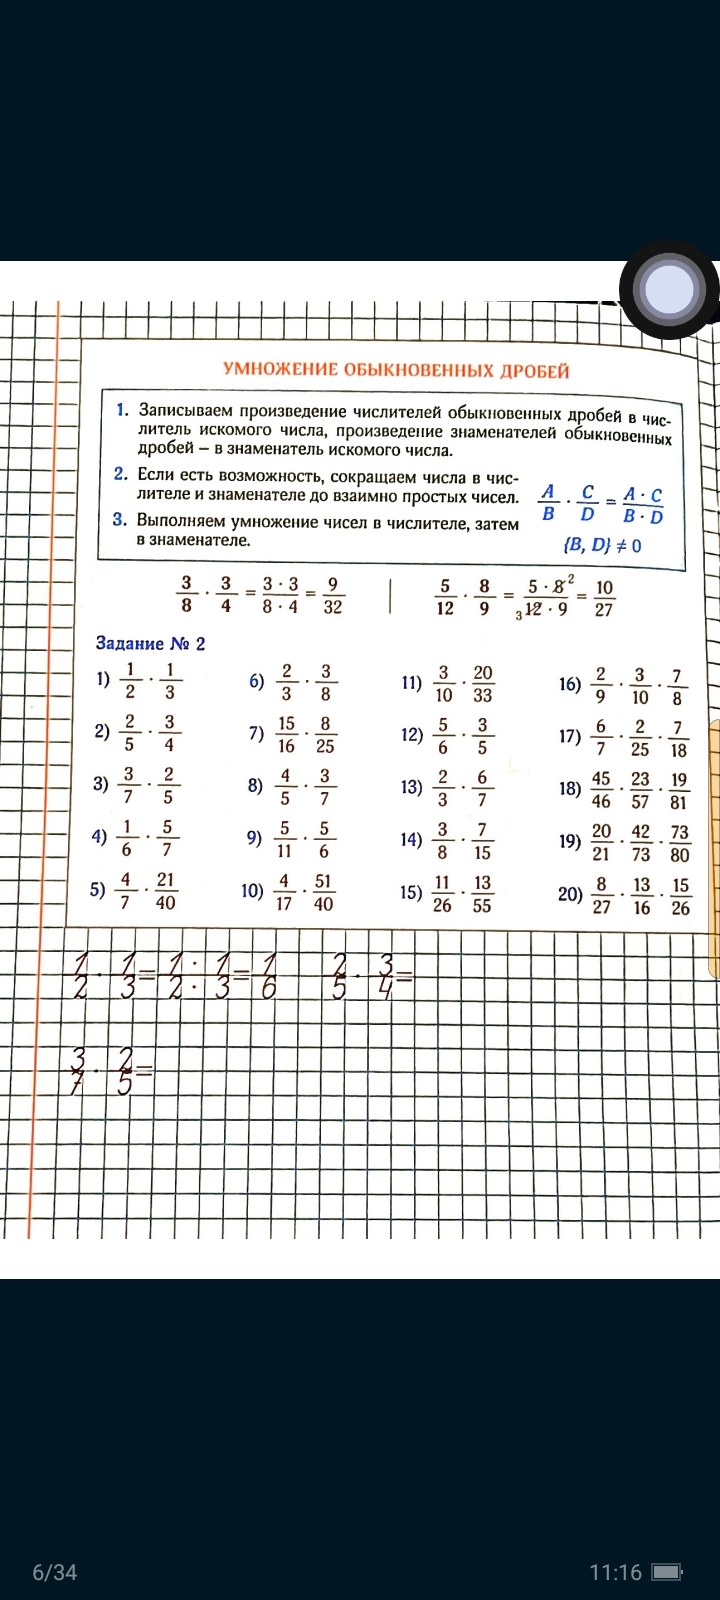 УМНОЖЕНИЕ ОБЫКНОВЕННЫХ ДРОБЕЙ
1. Записываем произведение числителей обыкновенных дробей в чис-
литель искомого числа, произведение знаменателей обыкновенных
дробей – в знаменатель искомого числа.
2. Если есть возможность, сокращаем числа в чис-
лителе и знаменателе до взаимно простых чисел.
3. Выполняем умножение чисел в числителе, затем
в знаменателе.
A/B · C/D = A · C/B · D
{B, D} ≠ 0
3/8 · 3/4 = 3 · 3/8 · 4 = 9/32 | 5/12 · 8/9 = 5 · 8²/₃12 · 9 = 10/27
Задание № 2
1) 1/2 · 1/3
2) 2/5 · 3/4
3) 3/7 · 2/5
4) 1/6 · 5/7
5) 4/7 · 21/40
6) 2/3 · 3/8
7) 15/16 · 8/25
8) 4/5 · 3/7
9) 5/11 · 5/6
10) 4/17 · 51/40
11) 3/10 · 20/33
12) 5/6 · 3/5
13) 2/3 · 6/7
14) 3/8 · 7/15
15) 11/26 · 13/55
16) 2/9 · 3/10 · 7/8
17) 6/7 · 2/25 · 7/18
18) 45/46 · 23/57 · 19/81
19) 20/21 · 42/73 · 73/80
20) 8/27 · 13/16 · 15/26
1/2 · 1/3 = 1 · 1/2 · 3 = 1/6 2/5 · 3/4 =
3/7 · 2/5 =
6/34 11:16